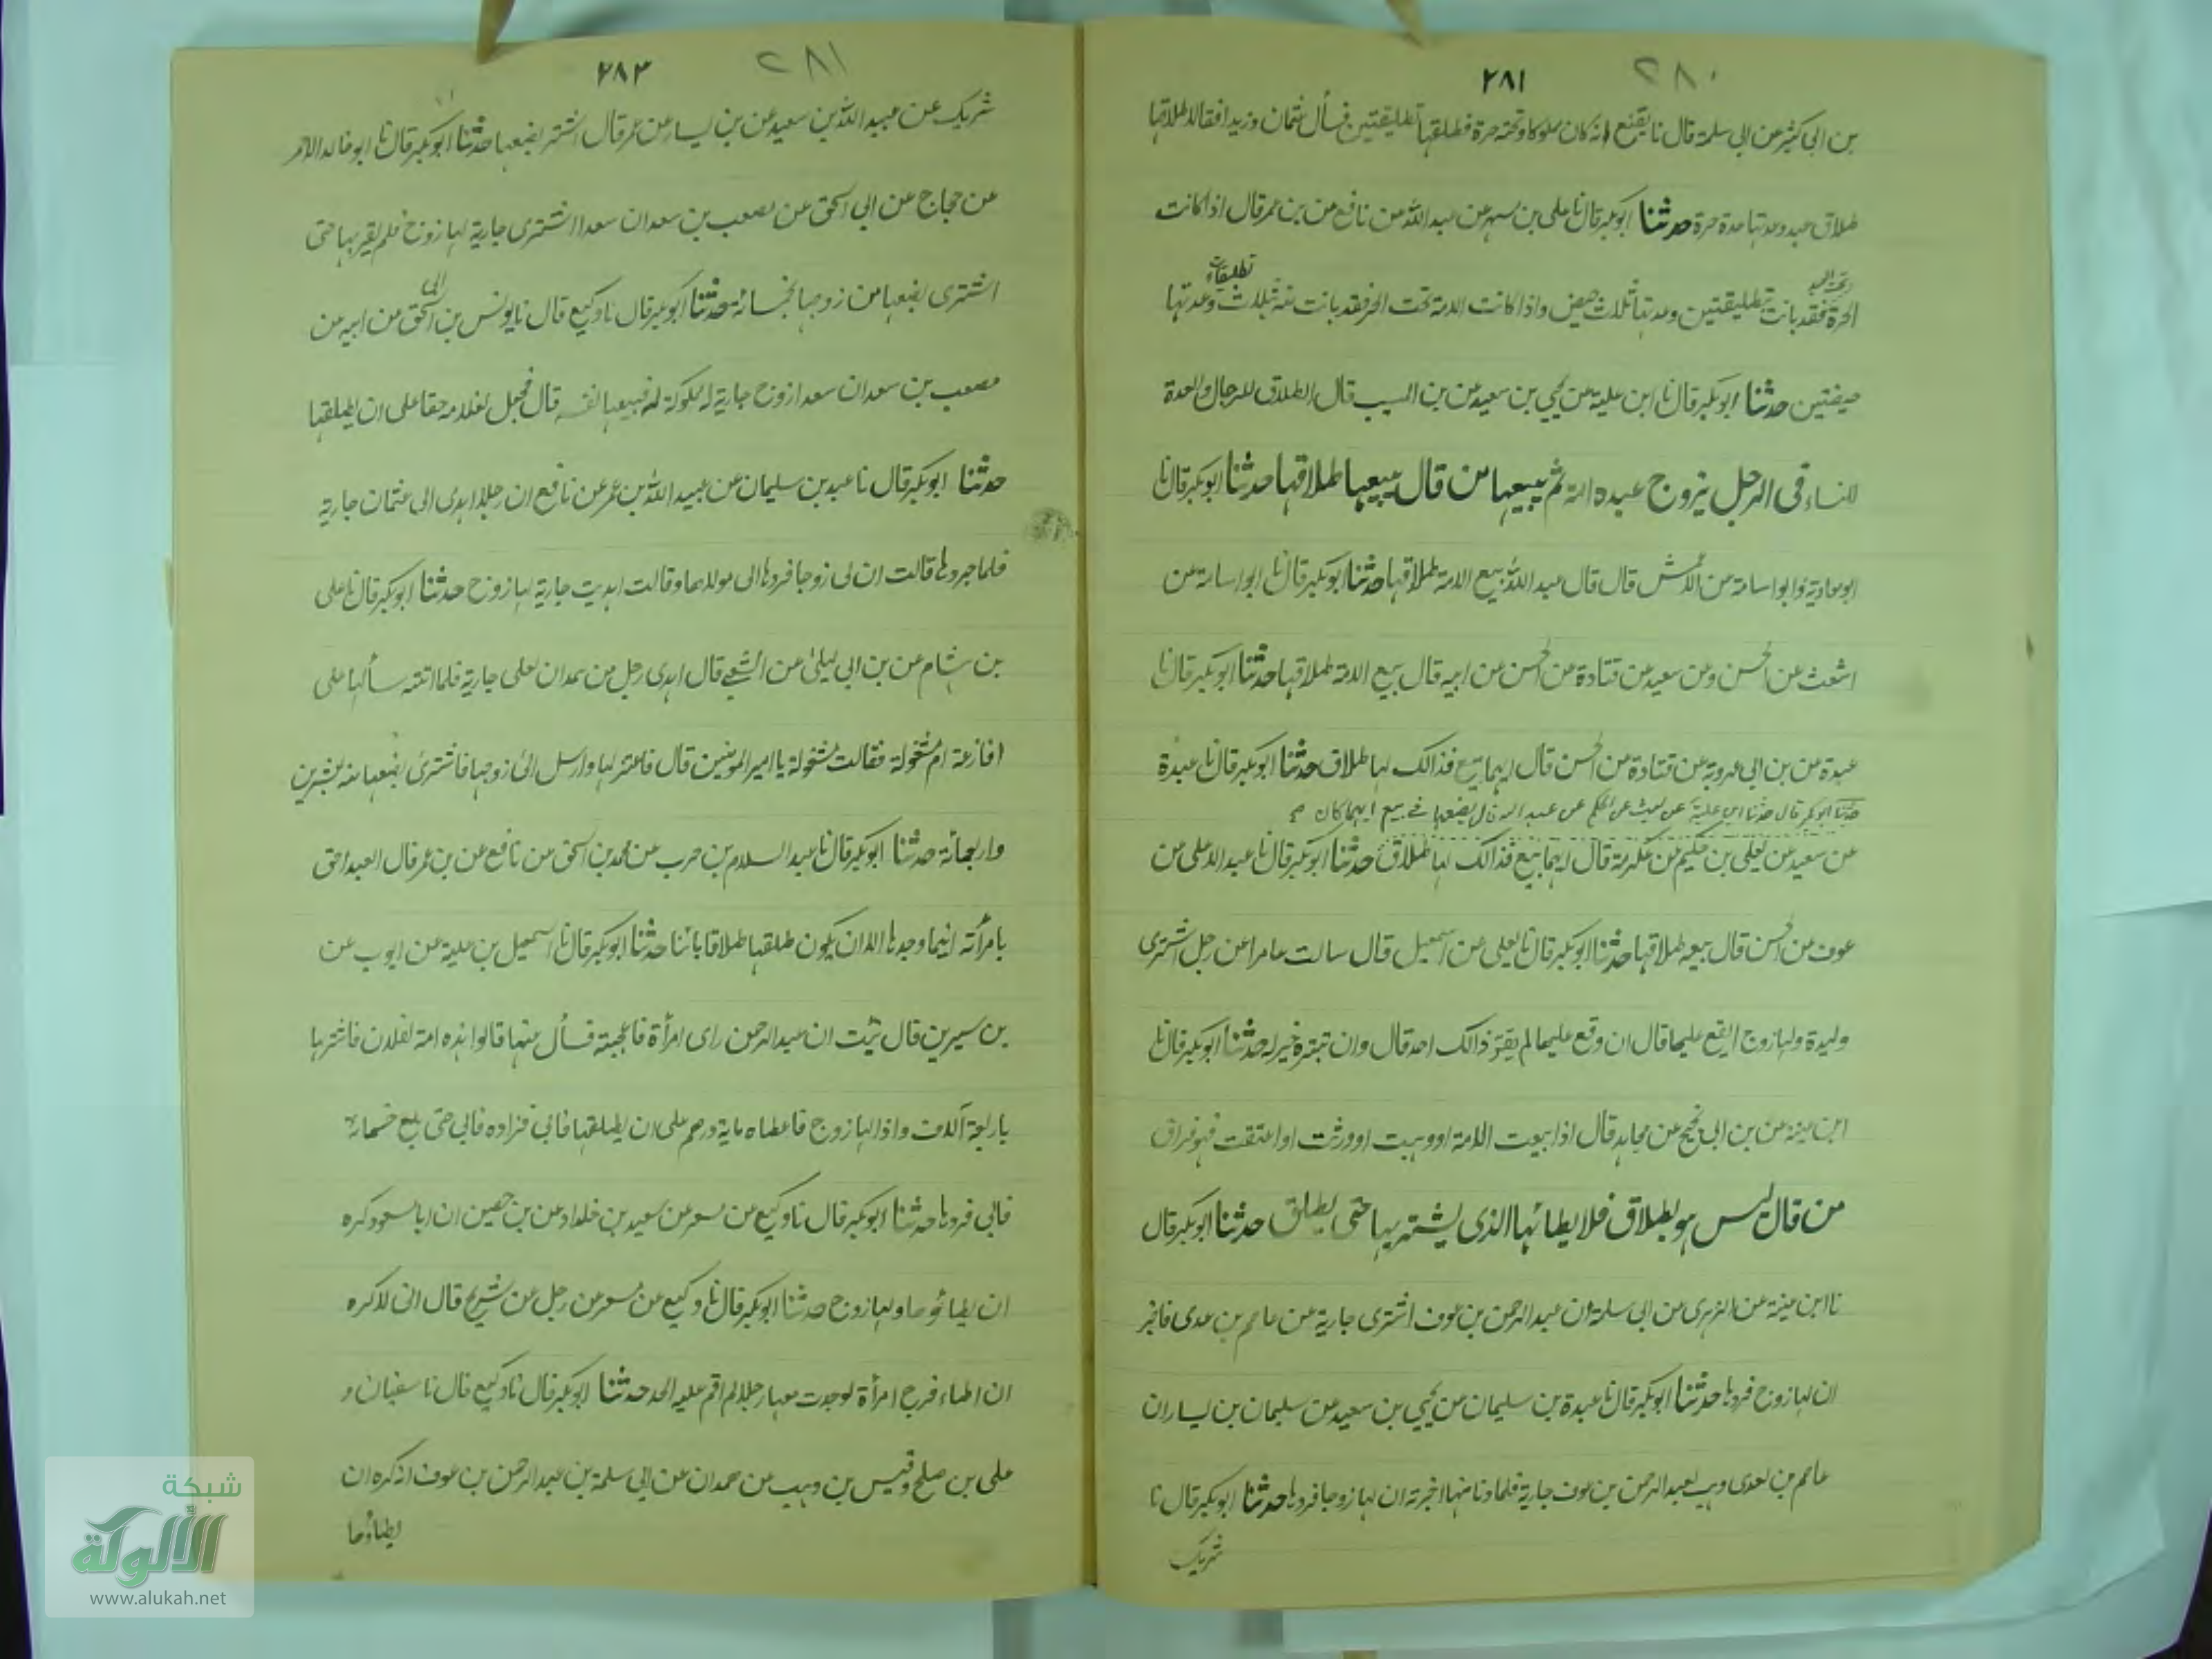 ٢٨٠
٢٨١
بن ابى كثير عن ابى سلمة قال نا نفيع انه كان مملوكا وتحته حرة فطلقها تطليقتين فسأل عثمان وزيدا فقالا طلاقها
طلاق عبد وعدتها عدة حرة حدثنا ابوبكر قال نا على بن مسهر عن عبيد الله عن نافع عن بن عمر قال اذا كانت
تحت العبد تطليقات
الحرة فقد بانت بتطليقتين وعدتها ثلاث حيض واذا كانت الامة تحت الحر فقد بانت منه بثلاث وعدتها
حيضتين حدثنا ابوبكر قال نا ابن علية عن يحيى بن سعيد عن بن المسيب قال الطلاق للرجال والعدة
للنساء فى الرجل يزوج عبده امته ثم يبيعها من قال بيعها طلاقها حدثنا ابوبكر قال نا
ابو معاوية وابو اسامة عن الاعمش قال قال عبد الله بيع الامة طلاقها حدثنا ابوبكر قال نا ابو اسامة عن
اشعث عن الحسن وعن سعيد عن قتادة عن الحسن عن ابيه قال بيع الامة طلاقها حدثنا ابوبكر قال نا
عبدة عن بن ابى عروبة عن قتادة عن الحسن قال ايهما بيع فذالك لها طلاق حدثنا ابوبكر قال نا عبدة
حدثنا ابوبكر قال حدثنا ابن علية عن ليث عن الحكم عن عبد الله قال بضعها فى بيع ايهما كان
عن سعيد عن يعلى بن حكيم عن عكرمة قال ايهما بيع فذالك لها طلاق حدثنا ابوبكر قال نا عبد الاعلى عن
عوف عن الحسن قال بيعه طلاقها حدثنا ابوبكر قال نا يعلى عن اسمعيل قال سالت عامرا عن رجل اشترى
وليدة ولها زوج ايقع عليها قال ان وقع عليها لم يغير ذالك احد قال وان تنزه خير له حدثنا ابوبكر قال نا
ابن عيينة عن بن ابى نجيح عن مجاهد قال اذا بيعت الامة او وهبت او ورثت او اعتقت فهو فراق
من قال ليس هو بطلاق فلا يطائها الذى يشتريها حتى يطلق حدثنا ابوبكر قال
نا ابن عيينة عن الزهرى عن ابى سلمة ان عبد الرحمن بن عوف اشترى جارية من عاصم بن عدى فاخبر
ان لها زوج فردها حدثنا ابوبكر قال نا عبدة بن سليمان عن يحيى بن سعيد عن سليمان بن يسار ان
عاصم بن عدى وهب لعبد الرحمن بن عوف جارية فلما دنا منها اخبرته ان لها زوجا فردها حدثنا ابوبكر قال نا
شريك
٢٨١
٢٨٢
شريك عن عبيد الله بن سعيد عن بن يسار عن عمر قال اشتر بضعها حدثنا ابوبكر قال نا ابو خالد الاحمر
عن حجاج عن ابى اسحق عن مصعب بن سعد ان سعدا اشترى جارية لها زوج فلم يقربها حتى
اشترى بضعها من زوجها بخمسمائة حدثنا ابوبكر قال نا وكيع قال نا يونس بن ابى اسحق عن ابيه عن
مصعب بن سعد ان سعدا زوج جارية له مملوكة له فتبيعها نفسه قال فجعل لغلامه حقا على ان يطلقها
حدثنا ابوبكر قال نا عبد بن سليمان عن عبيد الله بن عمر عن نافع ان رجلا اهدى الى عثمان جارية
فلما جردها قالت ان لى زوجا فردها الى مولاها وقالت اهديت جارية لها زوج حدثنا ابوبكر قال نا على
بن هشام عن بن ابى ليلى عن الشعبى قال اهدى رجل من همدان لعلى جارية فلما اتته سألها على
افارغة ام مشغولة فقالت مشغولة يا امير المومنين قال فاعتزلها وارسل الى زوجها فاشترى بضعها منه بعشرين
واربعمائة حدثنا ابوبكر قال نا عبد السلام بن حرب عن محمد بن اسحق عن نافع عن بن عمر قال العبد احق
بامرأته اينما وجدها الا ان يكون طلقها طلاقا بائنا حدثنا ابوبكر قال نا اسمعيل بن علية عن ايوب عن
بن سيرين قال نبئت ان عبد الرحمن راى امرأة فاعجبته فسأل عنها قالوا هذه امة لفلان فاشتراها
باربعة آلاف واذا لها زوج فاعطاه ماية درهم على ان يطلقها فابى فزاده فابى حتى بلغ خمسمائة
فابى فردها حدثنا ابوبكر قال نا وكيع عن مسعر عن سعيد بن خلداد عن بن حصين ان ابا مسعود كره
ان يطائوها ولها زوج حدثنا ابوبكر قال نا وكيع عن مسعر عن رجل عن شريح قال انى لاكره
ان اطاء فرج امرأة لو وجدت معها رجلا لم اقم عليه الحد حدثنا ابوبكر قال نا وكيع قال نا سفيان و
على بن صلح وقيس بن وهب عن حمدان عن ابى سلمة بن عبد الرحمن بن عوف انه كره ان
يطاؤها
شبكة
الألوكة
www.alukah.net